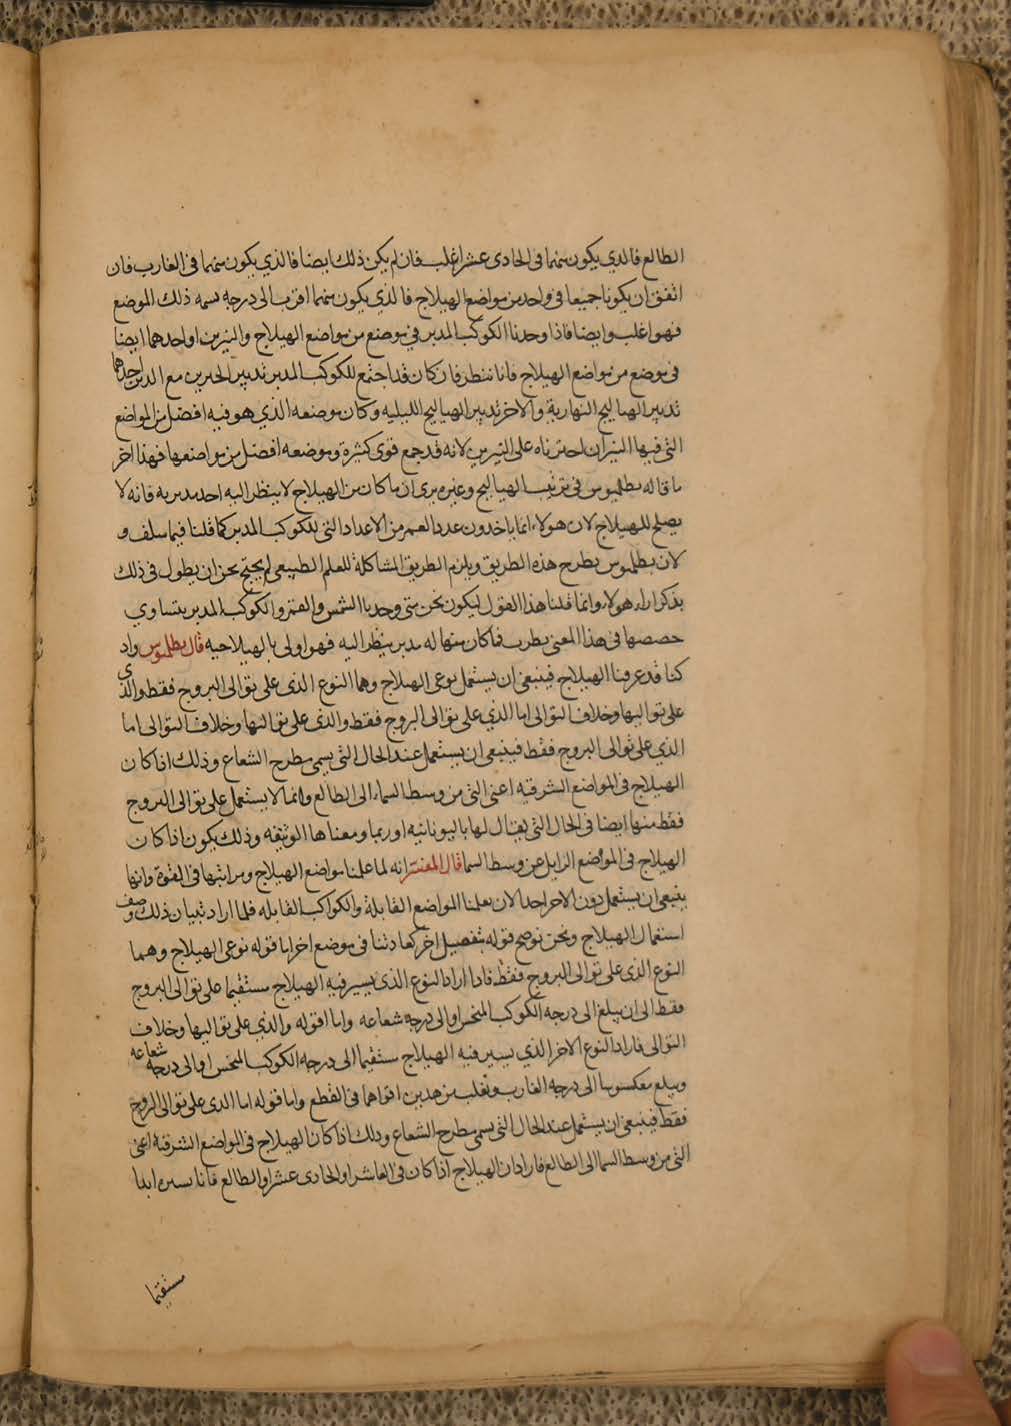 الطالع فالذي يكون منهما في الحادى عشر اغلب فان لم يكن ذلك ايضا فالذي يكون منهما في الغارب فان
اتفق ان يكونا جميعا في واحد من مواضع الهيلاج فالذي يكون منهما اقرب الى درجه سمه ذلك الموضع
فهو اغلب وايضا فاذا وجدنا الكوكب المدبر في موضع من مواضع الهيلاج والنيرين او احدهما ايضا
في موضع من مواضع الهيلاج فانا ننظر فان كان قد اجتمع للكوكب المدبر تدبير الحيزين مع الذين احدهما
تدبير الهياليج النهارية والاخر تدبير الهياليج الليليه وكان موضعه الذي هو فيه افضل من المواضع
التي فيها النيران اخترناه على النيرين لانه قد جمع قوى كثيرة وموضعه افضل من مواضعها فهذا اخر
ما قاله بطلميوس في ترتيب الهياليج وغيره يرى ان ما كان من الهيلاج لا ينظر اليه احد مدبريه فانه لا
يصلح للهيلاج لان هولاء انما ياخذون عدد العمر من الاعداد التي للكوكب المدبر كما قلنا فيما سلف و
لان بطلميوس يطرح هذه الطريق ويلزم الطريق المشاكلة للعلم الطبيعي لم يحتج نحن ان يطول في ذلك
بذكر اراء هولاء وانما قلنا هذا القول ليكون نحن متى وجدنا الشمس والقمر والكوكب المدبر يتساوي
حصصها في هذا المعنى نظرت فما كان منها له مدبر ينظر اليه فهو اولى بالهيلاجيه قال بطلميوس واذ
كنا قد عرفنا الهيلاج فينبغي ان يستعمل نوعي الهيلاج وهما النوع الذي على توالى البروج فقط والذي
على تواليها وخلاف التوالى اما الذي على توالى البروج فقط والذي على تواليها وخلاف التوالى اما
الذي على توالى البروج فقط فينبغي ان يستعمل عند الحال التي يسمى مطرح الشعاع وذلك اذا كان
الهيلاج في المواضع الشرقيه اعني التي من وسط السماء الى الطالع وانما لا يستعمل على توالى البروج
فقط منها ايضا في الحال التي يقال لها باليونانيه اوريما ومعناها الوثيقه وذلك يكون اذا كان
الهيلاج في المواضع الزايل عن وسط السما قال المفسر انه لما علمنا مواضع الهيلاج ومراتبها في القوة وانها
ينبغي ان يستعمل دون الاخر اخذ الان يعلمنا المواضع القابلة والكواكب القابله فلما اراد تبيان ذلك وصف
استعمال الهيلاج ونحن نوضح قوله بتفصيل اخر كعادتنا في موضع اخر اما قوله نوعي الهيلاج وهما
النوع الذي على توالى البروج فقط فاذا اراد النوع الذي يسير فيه الهيلاج مستقيما على توالى البروج
فقط الى ان يبلغ الى درجه الكوكب المنحس او الى درجه شعاعه واما قوله والذي على تواليها وخلاف
التوالى فاراد النوع الاخر الذي يسير فيه الهيلاج مستقيما الى درجه الكوكب المنحس او الى درجة شعاعه
ويبلغ معكوسا الى درجه الغارب وتغلب من هذين اقواهما في القطع واما قوله اما الذي على توالى البروج
فقط فينبغي ان يستعمل عند الحال التي يسمى مطرح الشعاع وذلك اذا كان الهيلاج في المواضع الشرقية اعني
التي من وسط السما الى الطالع فاراد ان الهيلاج اذا كان في العاشر او الحادى عشر او الطالع فانا نسيره ابدا
مستقيما